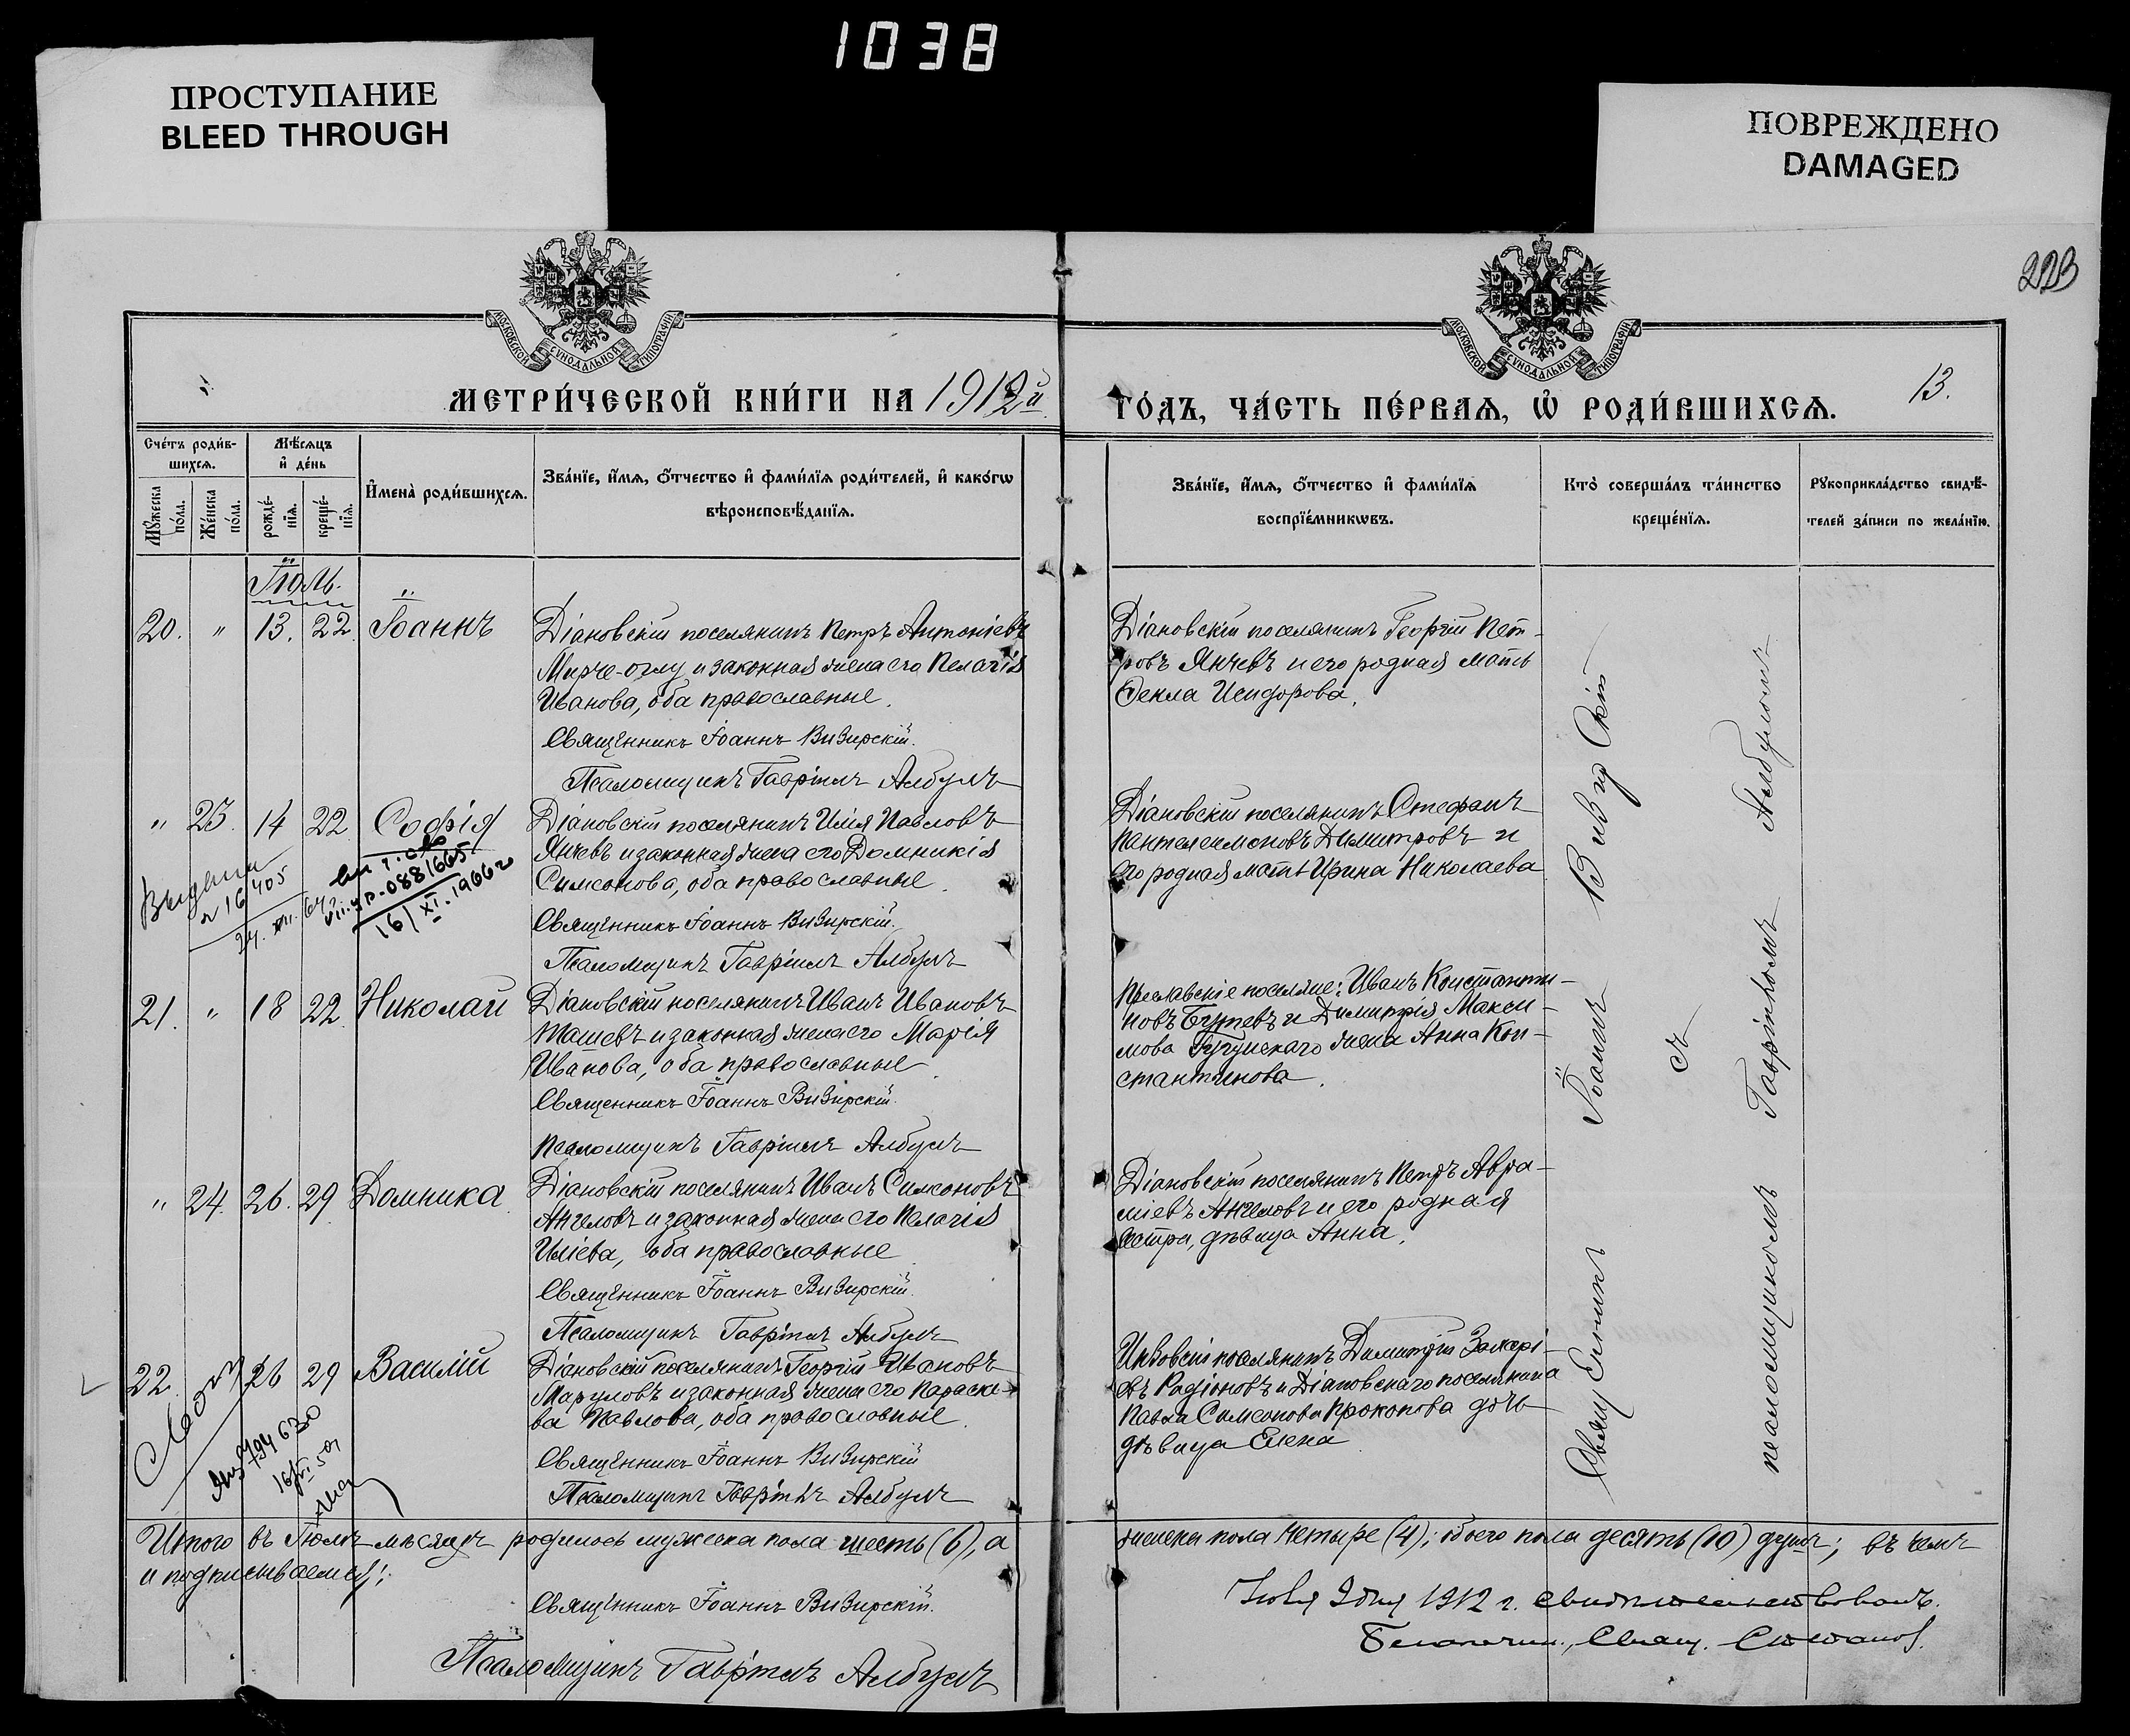 1038
ПРОСТУПАНИЕ
BLEED THROUGH
ПОВРЕЖДЕНО
DAMAGED
223
МОСКОВСКОЙ СѴНОДАЛЬНОЙ ТИПОГРАФІИ
МОСКОВСКОЙ СѴНОДАЛЬНОЙ ТИПОГРАФІИ
МЕТРИ́ЧЕСКОЙ КНИ́ГИ НА 1912й
ГО́ДЪ, ЧА́СТЬ ПЕ́РВАѦ, Ѡ҆ РОДИ́ВШИХСѦ.
13.
Сче́тъ роди́в-
шихсѧ.
Мꙋ́жеска по́ла.
Же́нска по́ла.
Мѣ́сѧцъ
и҆ де́нь
рожде́-
нїѧ.
креще́-
нїѧ.
И҆мена̀ роди́вшихсѧ.
Зва́нїе, и҆́мѧ, ѻ҆́тчество и҆ фами́лїѧ роди́телей, и҆ како́гѡ
вѣроисповѣ́данїѧ.
Зва́нїе, и҆́мѧ, ѻ҆́тчество и҆ фами́лїѧ
воспрїе́мникѡвъ.
Кто̀ соверша́лъ та́инство
креще́нїѧ.
Рꙋкоприкла́дство свидѣ́-
телей за́писи по жела́нїю.
Іюль.
20. " 13. 22. Іоаннъ
Діановскій поселянинъ Петръ Антоніевъ
Мирче-оглу и законная жена его Пелагія
Иванова, оба православные.
Священникъ Іоаннъ Визирскій.
Псаломщикъ Гавріилъ Албулъ
Діановскій поселянинъ Георгій Пет-
ровъ Янчевъ и его родная мать
Ѳекла Исидорова.
" 23. 14 22 Софія
Діановскій поселянинъ Илія Павловъ
Янчевъ и законная жена его Домникія
Симеонова, оба православные.
Священникъ Іоаннъ Визирскій.
Псаломщикъ Гавріилъ Албулъ
Діановскій поселянинъ Стефанъ
Пантелеимоновъ Димитровъ и
его родная мать Ирина Николаева
16/XI.1966
21. " 18 22 Николай
Діановскій поселянинъ Иванъ Ивановъ
Ташевъ и законная жена его Марія
Иванова, оба православные.
Священникъ Іоаннъ Визирскій.
Псаломщикъ Гавріилъ Албулъ
Преславскіе поселяне: Иванъ Константи-
новъ и Димитрія Макси-
мова жена Анна Кон-
стантинова.
" 24. 26. 29 Домника
Діановскій поселянинъ Иванъ Симеоновъ
Ангеловъ и законная жена его Пелагія
Иліева, оба православные
Священникъ Іоаннъ Визирскій.
Псаломщикъ Гавріилъ Албулъ
Діановскій поселянинъ Петръ Авра-
міевъ Ангеловъ и его родная
сестра, дѣвица Анна.
22. 26 29 Василій
Діановскій поселянинъ Георгій Ивановъ
Маруловъ и законная жена его Параске-
ва Павлова, оба православные.
Священникъ Іоаннъ Визирскій
Псаломщикъ Гавріилъ Албулъ
поселянинъ Димитрій Захарі-
евъ Радіоновъ и Діановскаго поселянина
Павла Симеонова Прокопова дочь
дѣвица Елена
794630
Священникъ Іоаннъ Визирскій
съ
псаломщикомъ Гавріиломъ Албуломъ
Итого въ Іюлѣ мѣсяцѣ родилось мужеска пола шесть (6), а
женска пола четыре (4); обоего пола десять (10) душъ; въ чемъ
и подписываемся:
Священникъ Іоаннъ Визирскій.
Псаломщикъ Гавріилъ Албулъ
1912 г. свидѣтельствовалъ.
Благочин., Свящ.